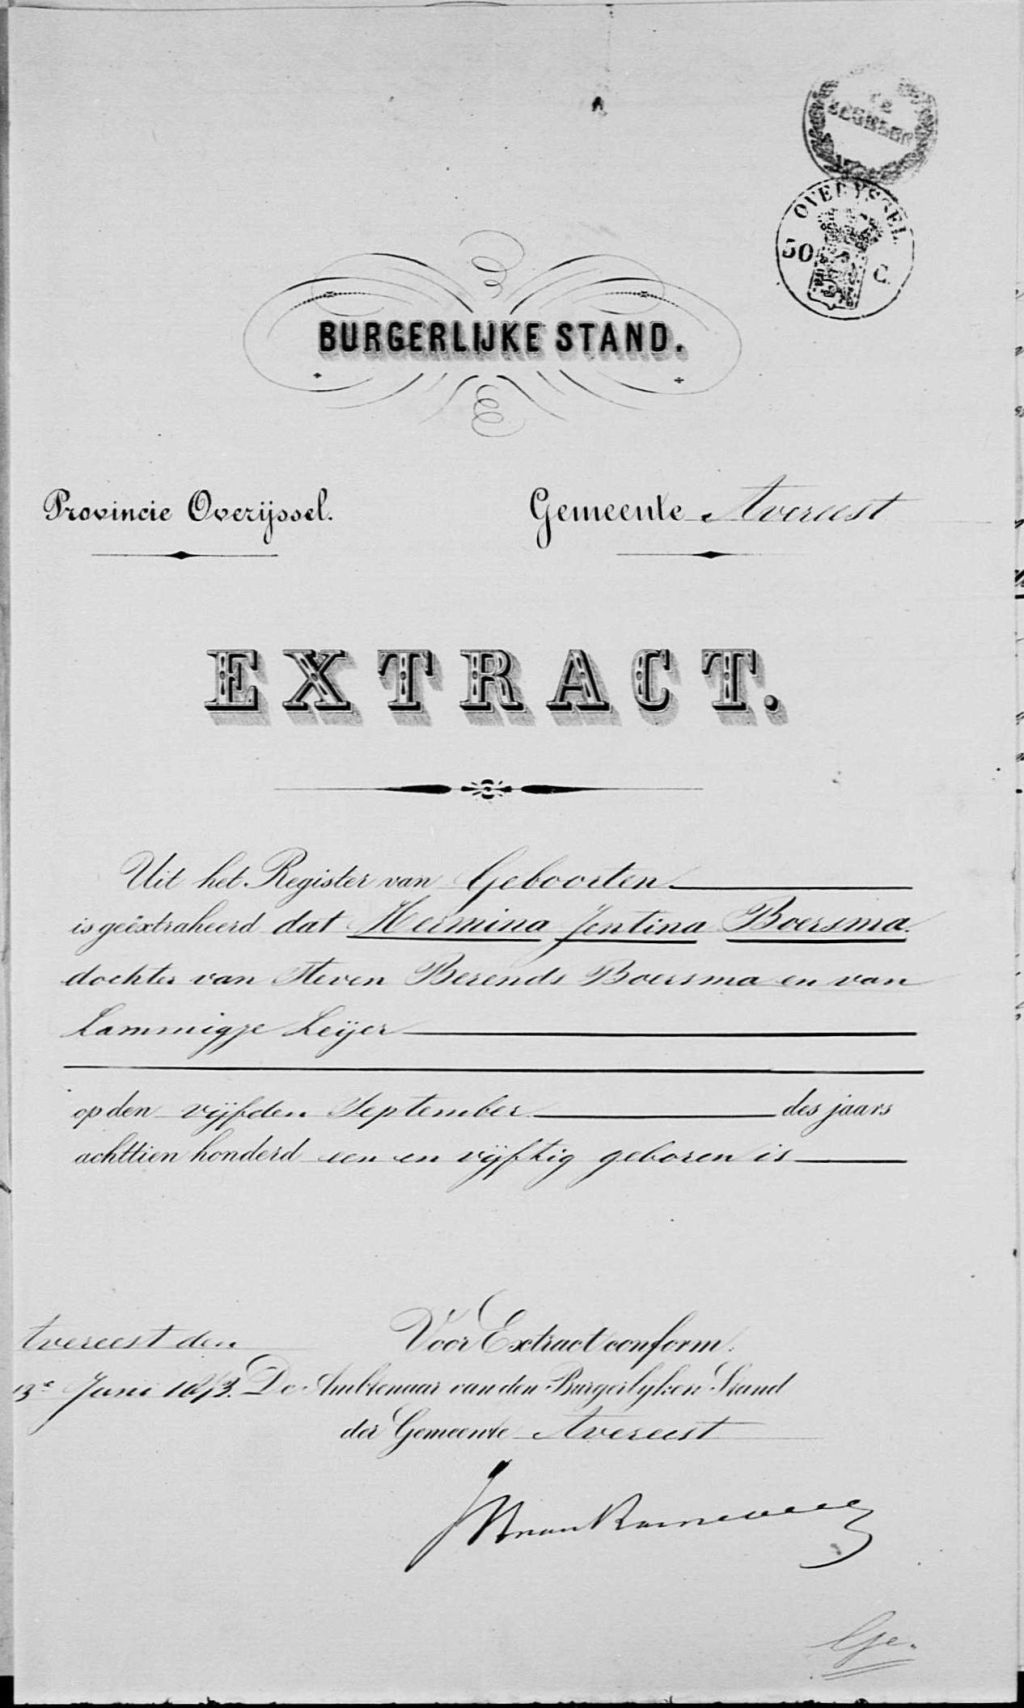 OVERYSSEL
50 C.
BURGERLIJKE STAND.
Provincie Overijssel. Gemeente Avereest
EXTRACT.
Uit het Register van Geboorten
is geëxtraheerd dat Hermina Jentina Boersma
dochter van Steven Berends Boersma en van
Lammigje Leijer
op den vijfden September des jaars
achttien honderd een en vijftig geboren is
Avereest den Voor Extract conform.
13e Juni 1873. De Ambtenaar van den Burgerlijken Stand
der Gemeente Avereest
Ge.